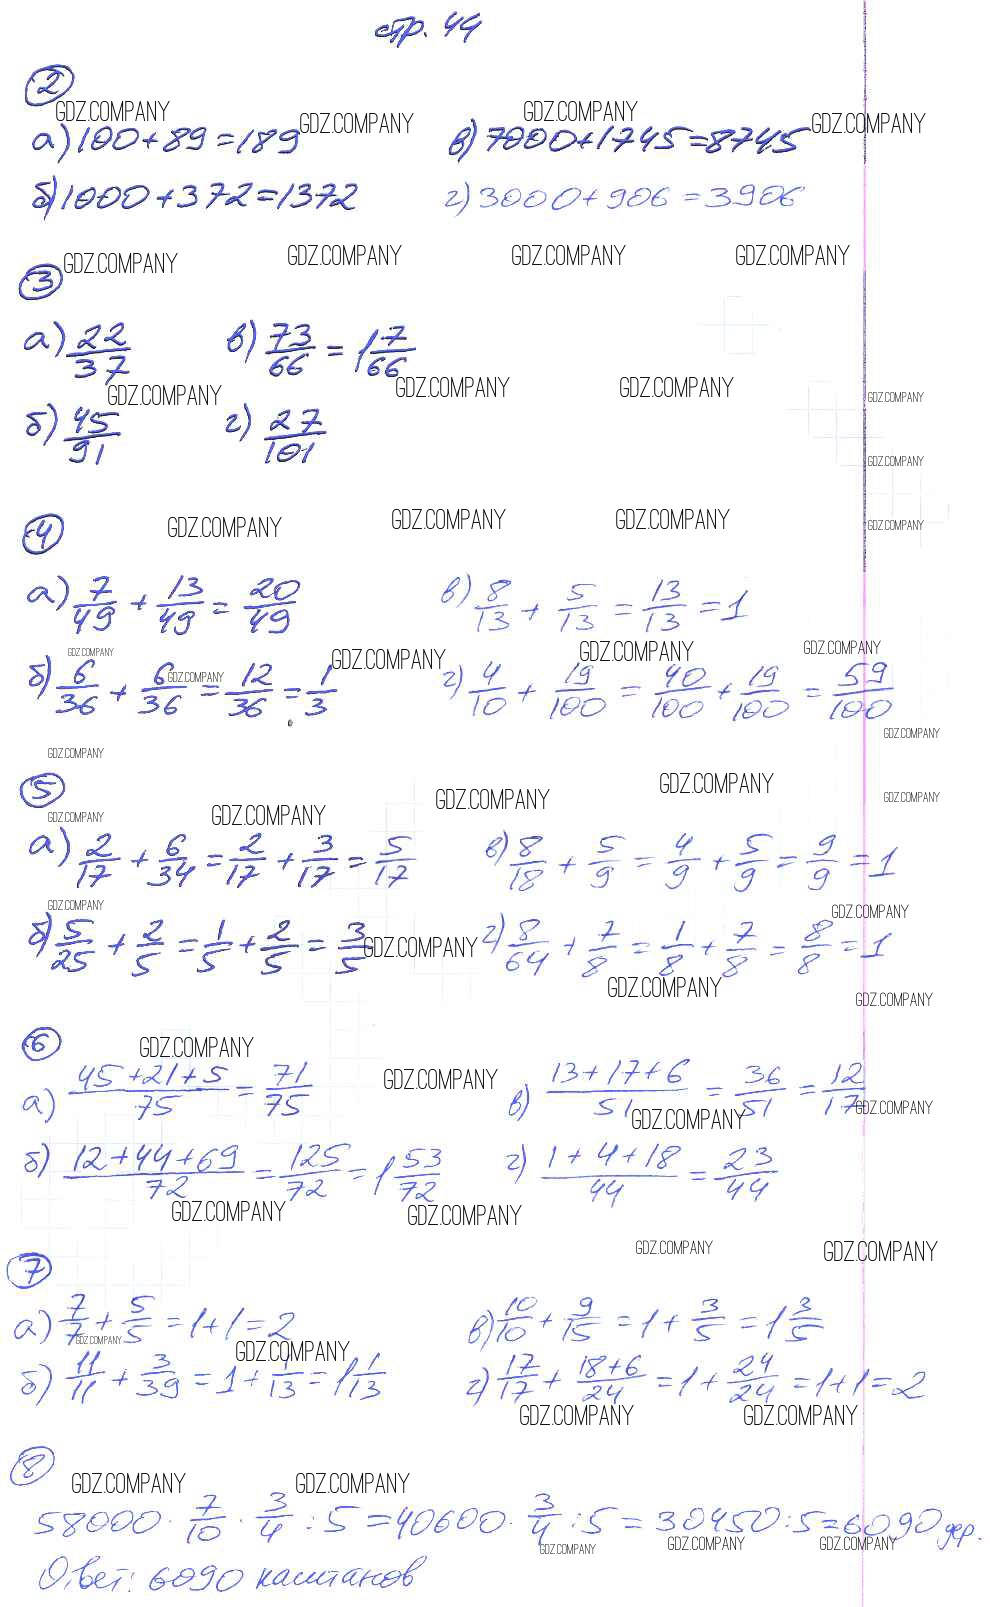 стр. 44
2
GDZ.COMPANY GDZ.COMPANY GDZ.COMPANY GDZ.COMPANY
а) 100+89=189 в) 7000+1745=8745
б) 1000+372=1372 г) 3000+906=3906
GDZ.COMPANY GDZ.COMPANY GDZ.COMPANY GDZ.COMPANY
3
а) 22/37 в) 73/66 = 1 7/66
GDZ.COMPANY GDZ.COMPANY GDZ.COMPANY GDZ.COMPANY
б) 45/91 г) 27/101
GDZ.COMPANY
4 GDZ.COMPANY GDZ.COMPANY GDZ.COMPANY GDZ.COMPANY
а) 7/49 + 13/49 = 20/49 в) 8/13 + 5/13 = 13/13 = 1
GDZ.COMPANY GDZ.COMPANY GDZ.COMPANY GDZ.COMPANY GDZ.COMPANY
б) 6/36 + 6/36 = 12/36 = 1/3 г) 4/10 + 19/100 = 40/100 + 19/100 = 59/100
GDZ.COMPANY GDZ.COMPANY
5 GDZ.COMPANY GDZ.COMPANY GDZ.COMPANY
GDZ.COMPANY GDZ.COMPANY
а) 2/17 + 6/34 = 2/17 + 3/17 = 5/17 в) 8/18 + 5/9 = 4/9 + 5/9 = 9/9 = 1
GDZ.COMPANY GDZ.COMPANY
б) 5/25 + 2/5 = 1/5 + 2/5 = 3/5 GDZ.COMPANY г) 8/64 + 7/8 = 1/8 + 7/8 = 8/8 = 1
GDZ.COMPANY GDZ.COMPANY
6 GDZ.COMPANY GDZ.COMPANY
а) 45+21+5/75 = 71/75 в) 13+17+6/51 = 36/51 = 12/17
GDZ.COMPANY GDZ.COMPANY
б) 12+44+69/72 = 125/72 = 1 53/72 г) 1+4+18/44 = 23/44
GDZ.COMPANY GDZ.COMPANY
GDZ.COMPANY GDZ.COMPANY
7
а) 7/7 + 5/5 = 1+1=2 в) 10/10 + 9/15 = 1 + 3/5 = 1 3/5
GDZ.COMPANY GDZ.COMPANY
б) 11/11 + 3/39 = 1 + 1/13 = 1 1/13 г) 17/17 + 18+6/24 = 1 + 24/24 = 1+1=2
GDZ.COMPANY GDZ.COMPANY
8
GDZ.COMPANY GDZ.COMPANY
58000 · 7/10 · 3/4 : 5 = 40600 · 3/4 : 5 = 30450 : 5 = 6090 дер.
GDZ.COMPANY GDZ.COMPANY GDZ.COMPANY
Ответ: 6090 каштанов